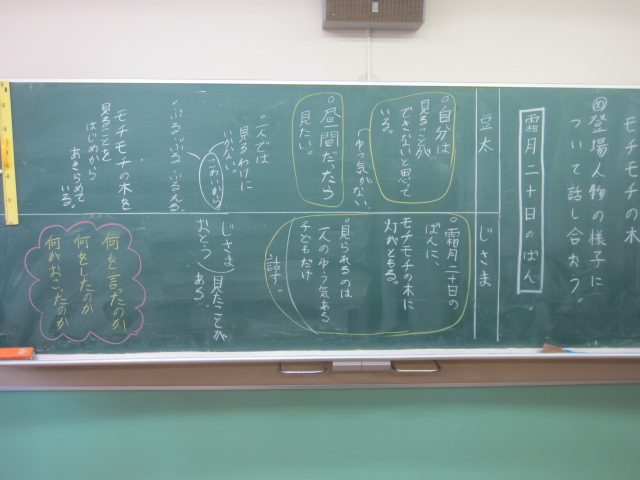 モチモチの木
め登場人物の様子に
ついて話し合おう。
霜月二十日のばん
豆太
じさま
○自分は
見ることが
できないと思って
いる。
ゆう気がない
○昼間だったら
見たい。
一人では
見るわけに
いかない。
こわいから
○ぶるぶるふるえる。
モチモチの木を
見ることを
はじめから
あきらめて
いる。
○霜月二十日の
ばんに、
モチモチの木に
灯がともる。
○見られるのは
一人のゆう気ある
子どもだけ
話す。
じさま
おとう
見たことが
ある。
何を言たのか
何をしたのか
何がおこったのか